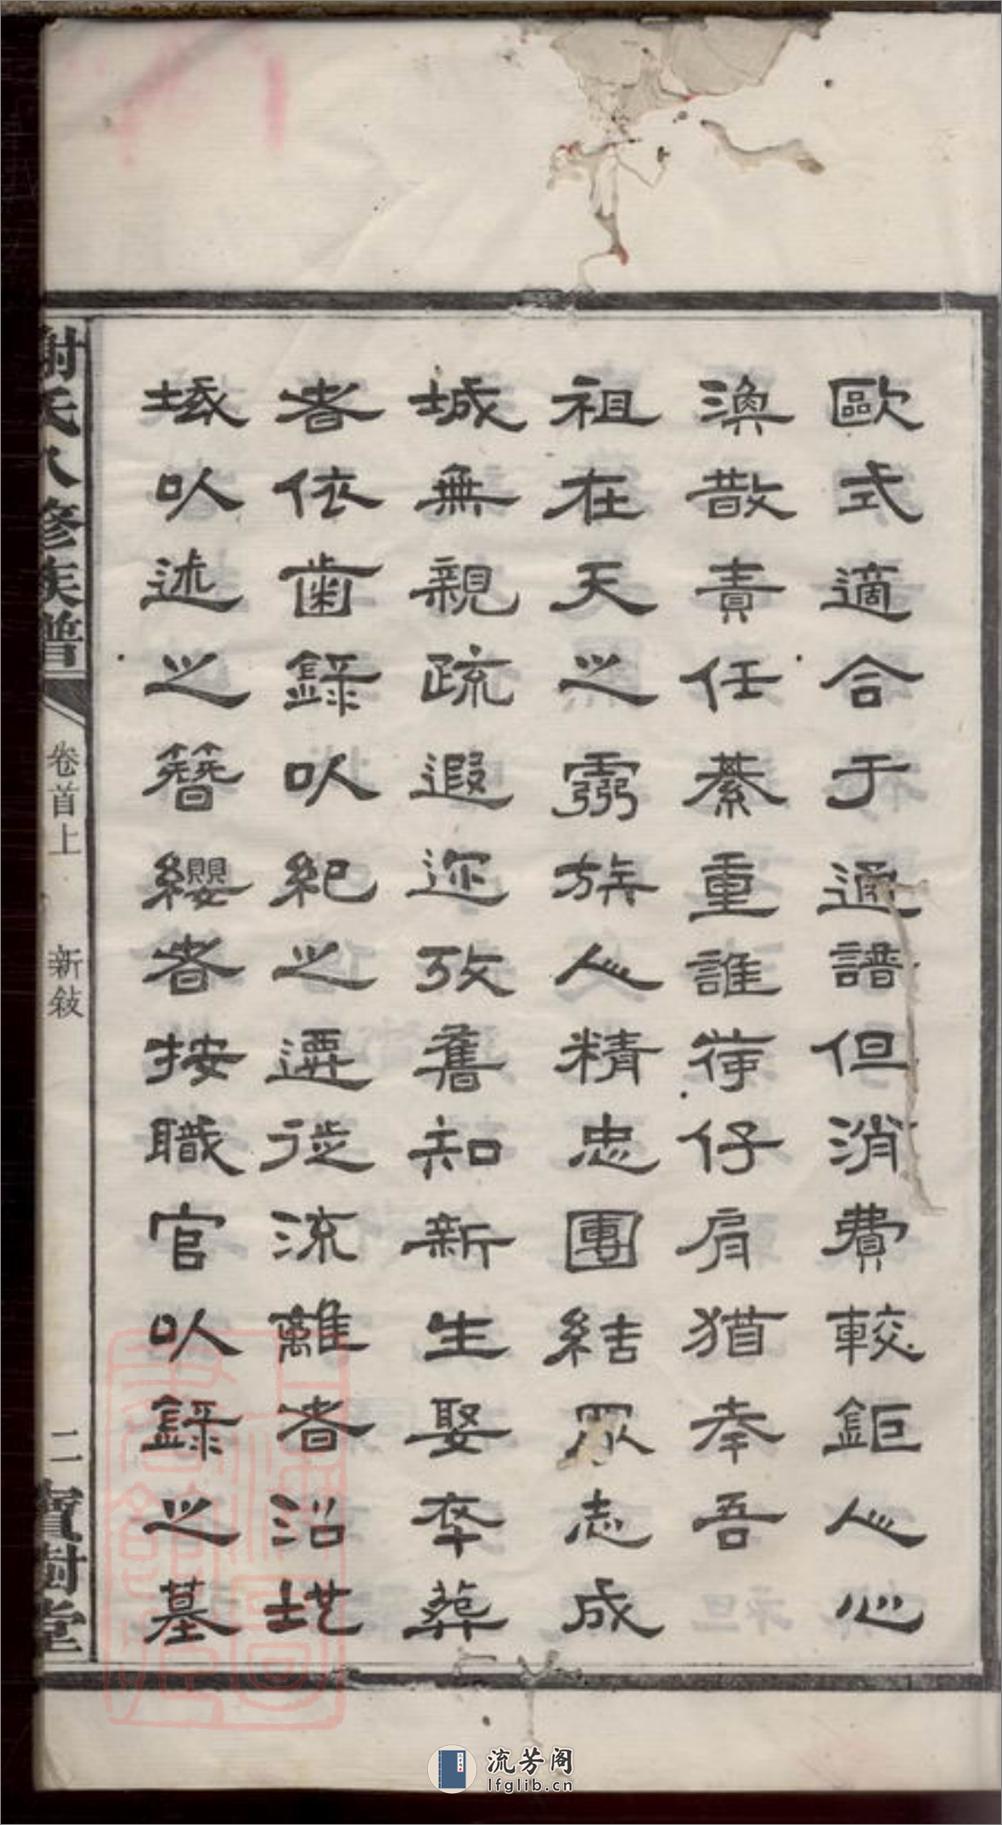 歐式適合于通譜但消費較鉅人心
渙散責任綦重誰荷仔肩猶幸吾
祖在天之靈族人精忠團結眾志成
城無親疏遐迩攷舊知新生娶卒葬
者依齒錄以紀之遷徙流離者沿地
域以述之簪纓者按職官以錄之墓
謝氏八修族譜
卷首上
新敍
二
寶樹堂
流芳阁
lfglib.cn